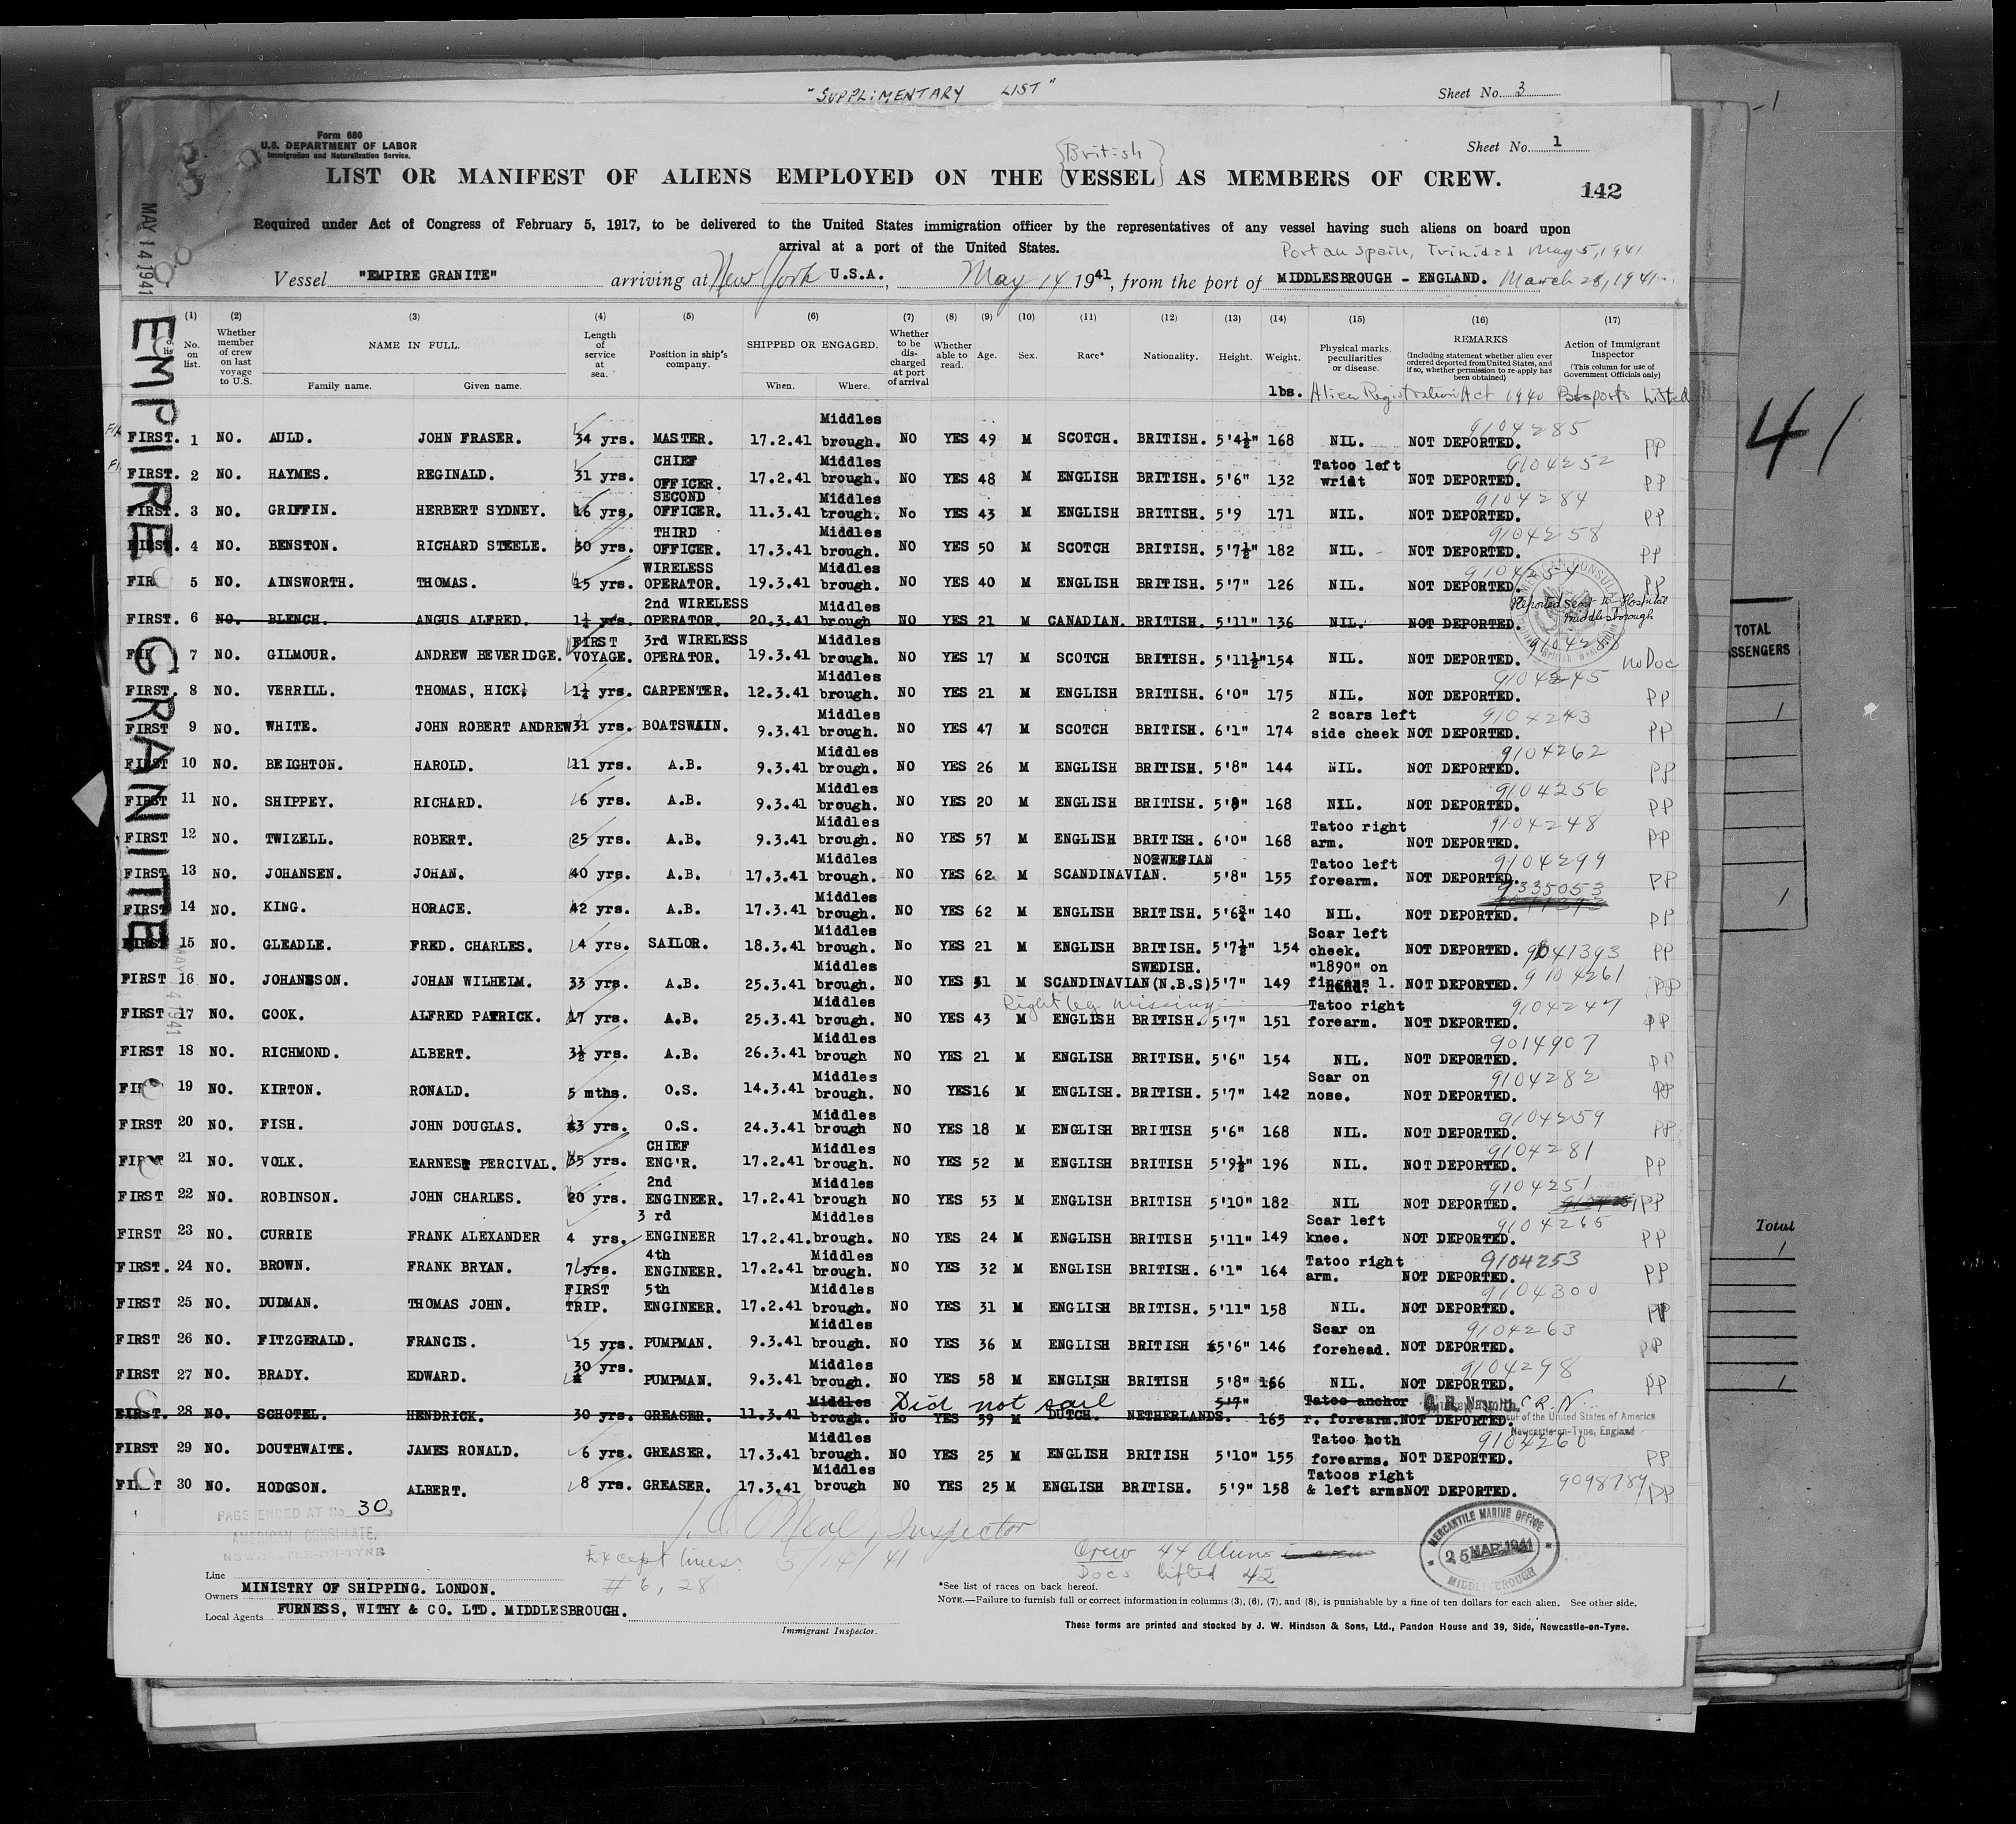 "SUPPLIMENTARY LIST"
Sheet No. 3
Form 680
U.S. DEPARTMENT OF LABOR
Immigration and Naturalization Service.
Sheet No. 1
{British}
LIST OR MANIFEST OF ALIENS EMPLOYED ON THE {VESSEL} AS MEMBERS OF CREW.
142
Required under Act of Congress of February 5, 1917, to be delivered to the United States immigration officer by the representatives of any vessel having such aliens on board upon
arrival at a port of the United States.
Port au Spain, Trinidad May 5, 1941
Vessel "EMPIRE GRANITE" arriving at New York U.S.A., May 14 1941, from the port of MIDDLESBROUGH - ENGLAND. March 28, 1941
MAY 14 1941
EMPIRE GRANITE
(1) No. on list.
(2) Whether member of crew on last voyage to U.S.
(3) NAME IN FULL. Family name. Given name.
(4) Length of service at sea.
(5) Position in ship's company.
(6) SHIPPED OR ENGAGED. When. Where.
(7) Whether to be discharged at port of arrival
(8) Whether able to read.
(9) Age.
(10) Sex.
(11) Race*
(12) Nationality.
(13) Height.
(14) Weight. lbs.
(15) Physical marks, peculiarities or disease.
(16) REMARKS (Including statement whether alien ever ordered deported from United States, and if so, whether permission to re-apply has been obtained)
(17) Action of Immigrant Inspector (This column for use of Government Officials only)
Alien Registration Act 1940 Passports Listed
FIRST. 1 NO. AULD. JOHN FRASER. 34 yrs. MASTER. 17.2.41 Middles brough. NO YES 49 M SCOTCH. BRITISH. 5'4½" 168 NIL. NOT DEPORTED. 9104285 PP
FIRST. 2 NO. HAYMES. REGINALD. 31 yrs. CHIEF OFFICER. 17.2.41 Middles brough. NO YES 48 M ENGLISH BRITISH. 5'6" 132 Tatoo left wridt NOT DEPORTED. 9104252 PP
FIRST. 3 NO. GRIFFIN. HERBERT SYDNEY. 16 yrs. SECOND OFFICER. 11.3.41 Middles brough. No YES 43 M ENGLISH BRITISH. 5'9 171 NIL. NOT DEPORTED. 9104284 PP
FIRST. 4 NO. BENSTON. RICHARD STEELE. 30 yrs. THIRD OFFICER. 17.3.41 Middles brough. NO YES 50 M SCOTCH BRITISH. 5'7½" 182 NIL. NOT DEPORTED. 9104258 PP
FIR 5 NO. AINSWORTH. THOMAS. 15 yrs. WIRELESS OPERATOR. 19.3.41 Middles brough. NO YES 40 M ENGLISH BRITISH. 5'7" 126 NIL. NOT DEPORTED. 9104254 PP
FIRST. 6 NO. BLENCH. ANGUS ALFRED. 1½ yrs. 2nd WIRELESS OPERATOR. 20.3.41 Middles brough NO YES 21 M CANADIAN. BRITISH. 5'11" 136 NIL. NOT DEPORTED. Reported sent to Hospital Middlesborough
FI 7 NO. GILMOUR. ANDREW BEVERIDGE. FIRST VOYAGE. 3rd WIRELESS OPERATOR. 19.3.41 Middles brough. NO YES 17 M SCOTCH BRITISH. 5'11½" 154 NIL. NOT DEPORTED. No Doc
FIRST. 8 NO. VERRILL. THOMAS, HICK. 1½ yrs. CARPENTER. 12.3.41 Middles brough. NO YES 21 M ENGLISH BRITISH. 6'0" 175 NIL. NOT DEPORTED. 9104245 PP
FIRST 9 NO. WHITE. JOHN ROBERT ANDREW 31 yrs. BOATSWAIN. 9.3.41 Middles brough. NO YES 47 M SCOTCH BRITISH. 6'1" 174 2 scars left side cheek NOT DEPORTED. 9104243 PP
FIRST 10 NO. BEIGHTON. HAROLD. 11 yrs. A.B. 9.3.41 Middles brough. NO YES 26 M ENGLISH BRITISH. 5'8" 144 NIL. NOT DEPORTED. 9104262 PP
FIRST 11 NO. SHIPPEY. RICHARD. 6 yrs. A.B. 9.3.41 Middles brough. NO YES 20 M ENGLISH BRITISH. 5'9" 168 NIL. NOT DEPORTED. 9104256 PP
FIRST 12 NO. TWIZELL. ROBERT. 25 yrs. A.B. 9.3.41 Middles brough. NO YES 57 M ENGLISH BRITISH. 6'0" 168 Tatoo right arm. NOT DEPORTED. 9104248 PP
FIRST 13 NO. JOHANSEN. JOHAN. 40 yrs. A.B. 17.3.41 Middles brough. NO YES 62 M SCANDINAVIAN. NORWEGIAN 5'8" 155 Tatoo left forearm. NOT DEPORTED. 9104299 PP
FIRST 14 NO. KING. HORACE. 42 yrs. A.B. 17.3.41 Middles brough. NO YES 62 M ENGLISH BRITISH. 5'6¾" 140 NIL. NOT DEPORTED. 9335053 PP
FIRST 15 NO. GLEADLE. FRED. CHARLES. 4 yrs. SAILOR. 18.3.41 Middles brough. No YES 21 M ENGLISH BRITISH. 5'7½" 154 Scar left cheek. NOT DEPORTED. 9041393 PP
FIRST 16 NO. JOHANSSON. JOHAN WILHELM. 33 yrs. A.B. 25.3.41 Middles brough. NO YES 51 M SCANDINAVIAN (N.B.S) SWEDISH. 5'7" 149 "1890" on fingers l. hand. NOT DEPORTED. 9104261 PP
Right leg missing
FIRST 17 NO. COOK. ALFRED PATRICK. 17 yrs. A.B. 25.3.41 Middles brough. NO YES 43 M ENGLISH BRITISH. 5'7" 151 Tatoo right forearm. NOT DEPORTED. 9104247 PP
FIRST 18 NO. RICHMOND. ALBERT. 3½ yrs. A.B. 26.3.41 Middles brough NO YES 21 M ENGLISH BRITISH. 5'6" 154 NIL. NOT DEPORTED. 9014907 PP
FIR 19 NO. KIRTON. RONALD. 5 mths. O.S. 14.3.41 Middles brough. NO YES 16 M ENGLISH. BRITISH. 5'7" 142 Scar on nose. NOT DEPORTED. 9104282 PP
FIRST 20 NO. FISH. JOHN DOUGLAS. 3 yrs. O.S. 24.3.41 Middles brough NO YES 18 M ENGLISH BRITISH 5'6" 168 NIL. NOT DEPORTED. 9104259 PP
FIRST 21 NO. VOLK. EARNEST PERCIVAL. 35 yrs. CHIEF ENG'R. 17.2.41 Middles brough. NO YES 52 M ENGLISH BRITISH 5'9½" 196 NIL. NOT DEPORTED. 9104281 PP
FIRST 22 NO. ROBINSON. JOHN CHARLES. 20 yrs. 2nd ENGINEER. 17.2.41 Middles brough NO YES 53 M ENGLISH BRITISH 5'10" 182 NIL NOT DEPORTED. 9104251 PP
FIRST 23 NO. CURRIE FRANK ALEXANDER 4 yrs. 3 rd ENGINEER 17.2.41. Middles brough. NO YES 24 M ENGLISH BRITISH 5'11" 149 Scar left knee. NOT DEPORTED. 9104265 PP
FIRST. 24 NO. BROWN. FRANK BRYAN. 7 yrs. 4th ENGINEER. 17.2.41 Middles brough. NO YES 32 M ENGLISH BRITISH. 6'1" 164 Tatoo right arm. NOT DEPORTED. 9104253 PP
FIRST 25 NO. DUDMAN. THOMAS JOHN. FIRST TRIP. 5th ENGINEER. 17.2.41 Middles brough. NO YES 31 M ENGLISH BRITISH. 5'11" 158 NIL. NOT DEPORTED. 9104300 PP
FIRST 26 NO. FITZGERALD. FRANCIS. 15 yrs. PUMPMAN. 9.3.41 Middles brough. NO YES 36 M ENGLISH BRITISH 5'6" 146 Scar on forehead. NOT DEPORTED. 9104263 PP
FIRST 27 NO. BRADY. EDWARD. 30 yrs. PUMPMAN. 9.3.41 Middles brough. NO YES 58 M ENGLISH BRITISH 5'8" 166 NIL. NOT DEPORTED. 9104298 PP
Did not sail
FIRST. 28 NO. SCHOTEL. HENDRICK. 30 yrs. GREASER. 11.3.41 Middles brough. No YES 59 M DUTCH. NETHERLANDS. 5'7" 165 Tatoo anchor r. forearm. NOT DEPORTED. C.R.N.
of the United States of America
Newcastle-on-Tyne, England
FIRST 29 NO. DOUTHWAITE. JAMES RONALD. 6 yrs. GREASER. 17.3.41 Middles brough. NO YES 25 M ENGLISH BRITISH 5'10" 155 Tatoo both forearms. NOT DEPORTED. 9104260 PP
FIRST 30 NO. HODGSON. ALBERT. 8 yrs. GREASER. 17.3.41 Middles brough NO YES 25 M ENGLISH BRITISH. 5'9" 158 Tatoos right & left arms NOT DEPORTED. 9098789 PP
PAGE ENDED AT No. 30.
AMERICAN CONSULATE,
NEWCASTLE-ON-TYNE
Inspector
Except lines
# 6, 28
Crew 44 Aliens
Docs lifted 42
MERCANTILE MARINE OFFICE
25 MAR 1941
MIDDLESBROUGH
Line
Owners MINISTRY OF SHIPPING. LONDON.
Local Agents FURNESS, WITHY & CO. LTD. MIDDLESBROUGH.
Immigrant Inspector.
*See list of races on back hereof.
NOTE.—Failure to furnish full or correct information in columns (3), (6), (7), and (8), is punishable by a fine of ten dollars for each alien. See other side.
These forms are printed and stocked by J. W. Hindson & Sons, Ltd., Pandon House and 39, Side, Newcastle-on-Tyne.
41
TOTAL
SSENGERS
1
1
Total
1
1